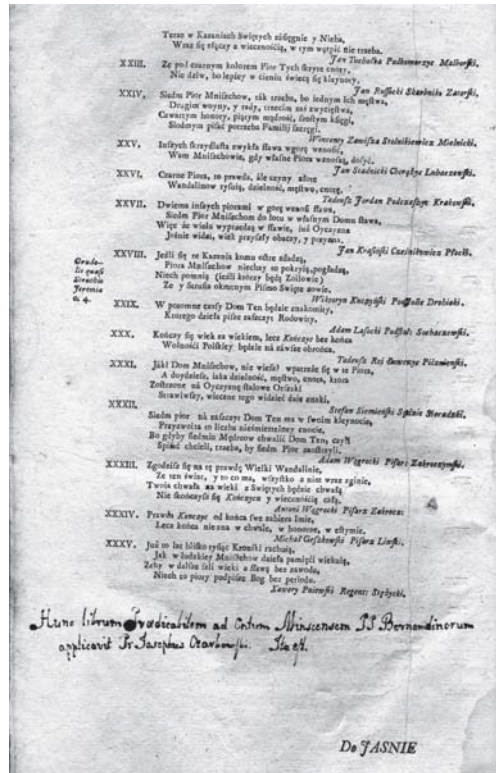 Teraz w Kazaniach Swiętych zásięgnie y Nieba,
Wraz się złączy z wiecznością, w tym wątpić nie trzeba.
Jan Tucholka Podkomorzyc Malborski.
XXIII. Ze pod czarnym kolorem Pior Tych skryte cnoty,
Nie dziw, bo lepiey w cieniu świecą się kleynoty.
Jan Russocki Skarbnik Zatorski.
XXIV. Siedm Pior Mniszchow, ták trzeba, bo iednym Ich męstwa,
Drugim woyny, y rády, trzecim záś zwycięstwa,
Czwartym honory, piątym mądrość, szostym księgi,
Siodmym pisáć potrzeba Familij
Wincenty Zawisza Stolnikiewicz Mielnicki.
XXV. Inszych skrzydlásta zwykłá sława wgorę wznośić,
Wam Mniszchowie, gdy własne Piora wznoszą, dosyć.
Jan Stadnicki Chorąży Lubaczewski.
XXVI. Czarne Piora, to prawdá, ále czyny złote
Wandalinow rysuią, dzielność, męstwo, cnotę.
Tadeusz Jordan Podczaszyc Krakowski.
XXVII. Dwiema inszych piorami w gorę wznosi sława,
Siedm Pior Mniszchom do lotu w własnym Domu sława,
Więc że wielu wyprzedzą w sławie, iuż Oyczyzna
Jáśnie widzi, wiek przyszły obaczy, y przyzna.
Jan Krasiński Cześnikowicz Płocki.
XXVIII. Jeśli się te Kazania komu ostre zdadzą,
Piora Mniszchow niechay to pokryią, pogładzą,
Niech pomnią (ieśli kończy będą Zoilowie)
Ze y Strusia okrutnym Pismo Swięte zowie.
Crude-
lis quasi
Struthio
Jeremia
c. 4.
Wiktoryn Kuczyński Podstole Drohicki.
XXIX. W potomne czasy Dom Ten będzie znakomity,
Ktorego dziełá pisze zaszczyt Rodowity.
Adam Lasocki Podstole Sochaczewski.
XXX. Kończy się wiek za wiekiem, lecz Kończyc bez końca
Wolności Polskiey będzie ná záwsze obrońca.
Tadeusz Rej Łowczyc Pilznieński.
XXXI. Jáki Dom Mniszchow, nie wiesz? wpatrzże się w te Piora,
A doydziesz, iaka dzielność, męstwo, cnota, ktora
Zostrzone ná Oyczyznę stalowe Orszaki
Strawiwszy, wieczne tego widzieć daie znaki.
Stefan Siemieński Sędzic Sieradzki.
XXXII. Siedm pior ná zaszczyt Dom Ten ma w swoim kleynocie,
Przyzwoita to liczbá nieśmiertelney cnocie,
Bo gdyby siedmiu Mędrcow chwalić Dom Ten, czyli
Spisáć chcieli, trzeba, by siedm Pior zaostrzyli.
Adam Węgrocki Pisarz Zakroczymski.
XXXIII. Zgodzisz się na tę prawdę Wielki Wandalinie,
Ze ten świat, y to co ma, wszystko z nim wraz zginie,
Twoia chwała na wieki z Swiętych będzie chwałą
Nie skończysz się Kończycu z wiecznością całą.
Antoni Węgrocki Pisarz Zakrocz:
XXXIV. Prawdá Kończyc od końca swe zabiera Imie,
Lecz końca nie zna w chwale, w honorze, w estymie.
Michał Pisarz Liwski.
XXXV. Już to lat blisko tysiąc Kroniki rachuią,
Jak w ludzkiey Mniszchow dzieła pamięći wiekuią,
Zeby w dalsze szli wieki z sławą bez zawodu,
Niech to piszy podpisze Bog bez periodu.
Xawery Pniewski Regent Stężycki.
Hunc librum Prædicabilem ad Cntum Minscensem PP Bernardinorum
applicavit Pr Josephus Czarkowski. Ita est.
Do JASNIE